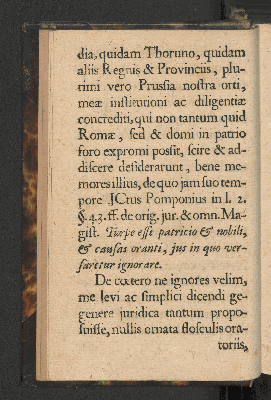 dia, quidam Thoruno, quidam
aliis Regnis & Provinciis, plu-
rimi vero Prussia nostra orti,
meæ institutioni ac diligentiæ
concrediti, qui non tantum quid
Romæ, sed & domi in patrio
foro expromi possit, scire & ad-
discere desiderarunt, bene me-
mores illius, de quo jam suo tem-
pore JCtus Pomponius in l. 2.
§. 43. ff. de orig. jur. & omn. Ma-
gist. Turpe esse patricio & nobili,
& causas oranti, jus in quo ver-
saretur ignorare.
De cœtero ne ignores velim,
me levi ac simplici dicendi ge-
genere juridica tantum propo-
suisse, nullis ornata flosculis ora-
toriis,